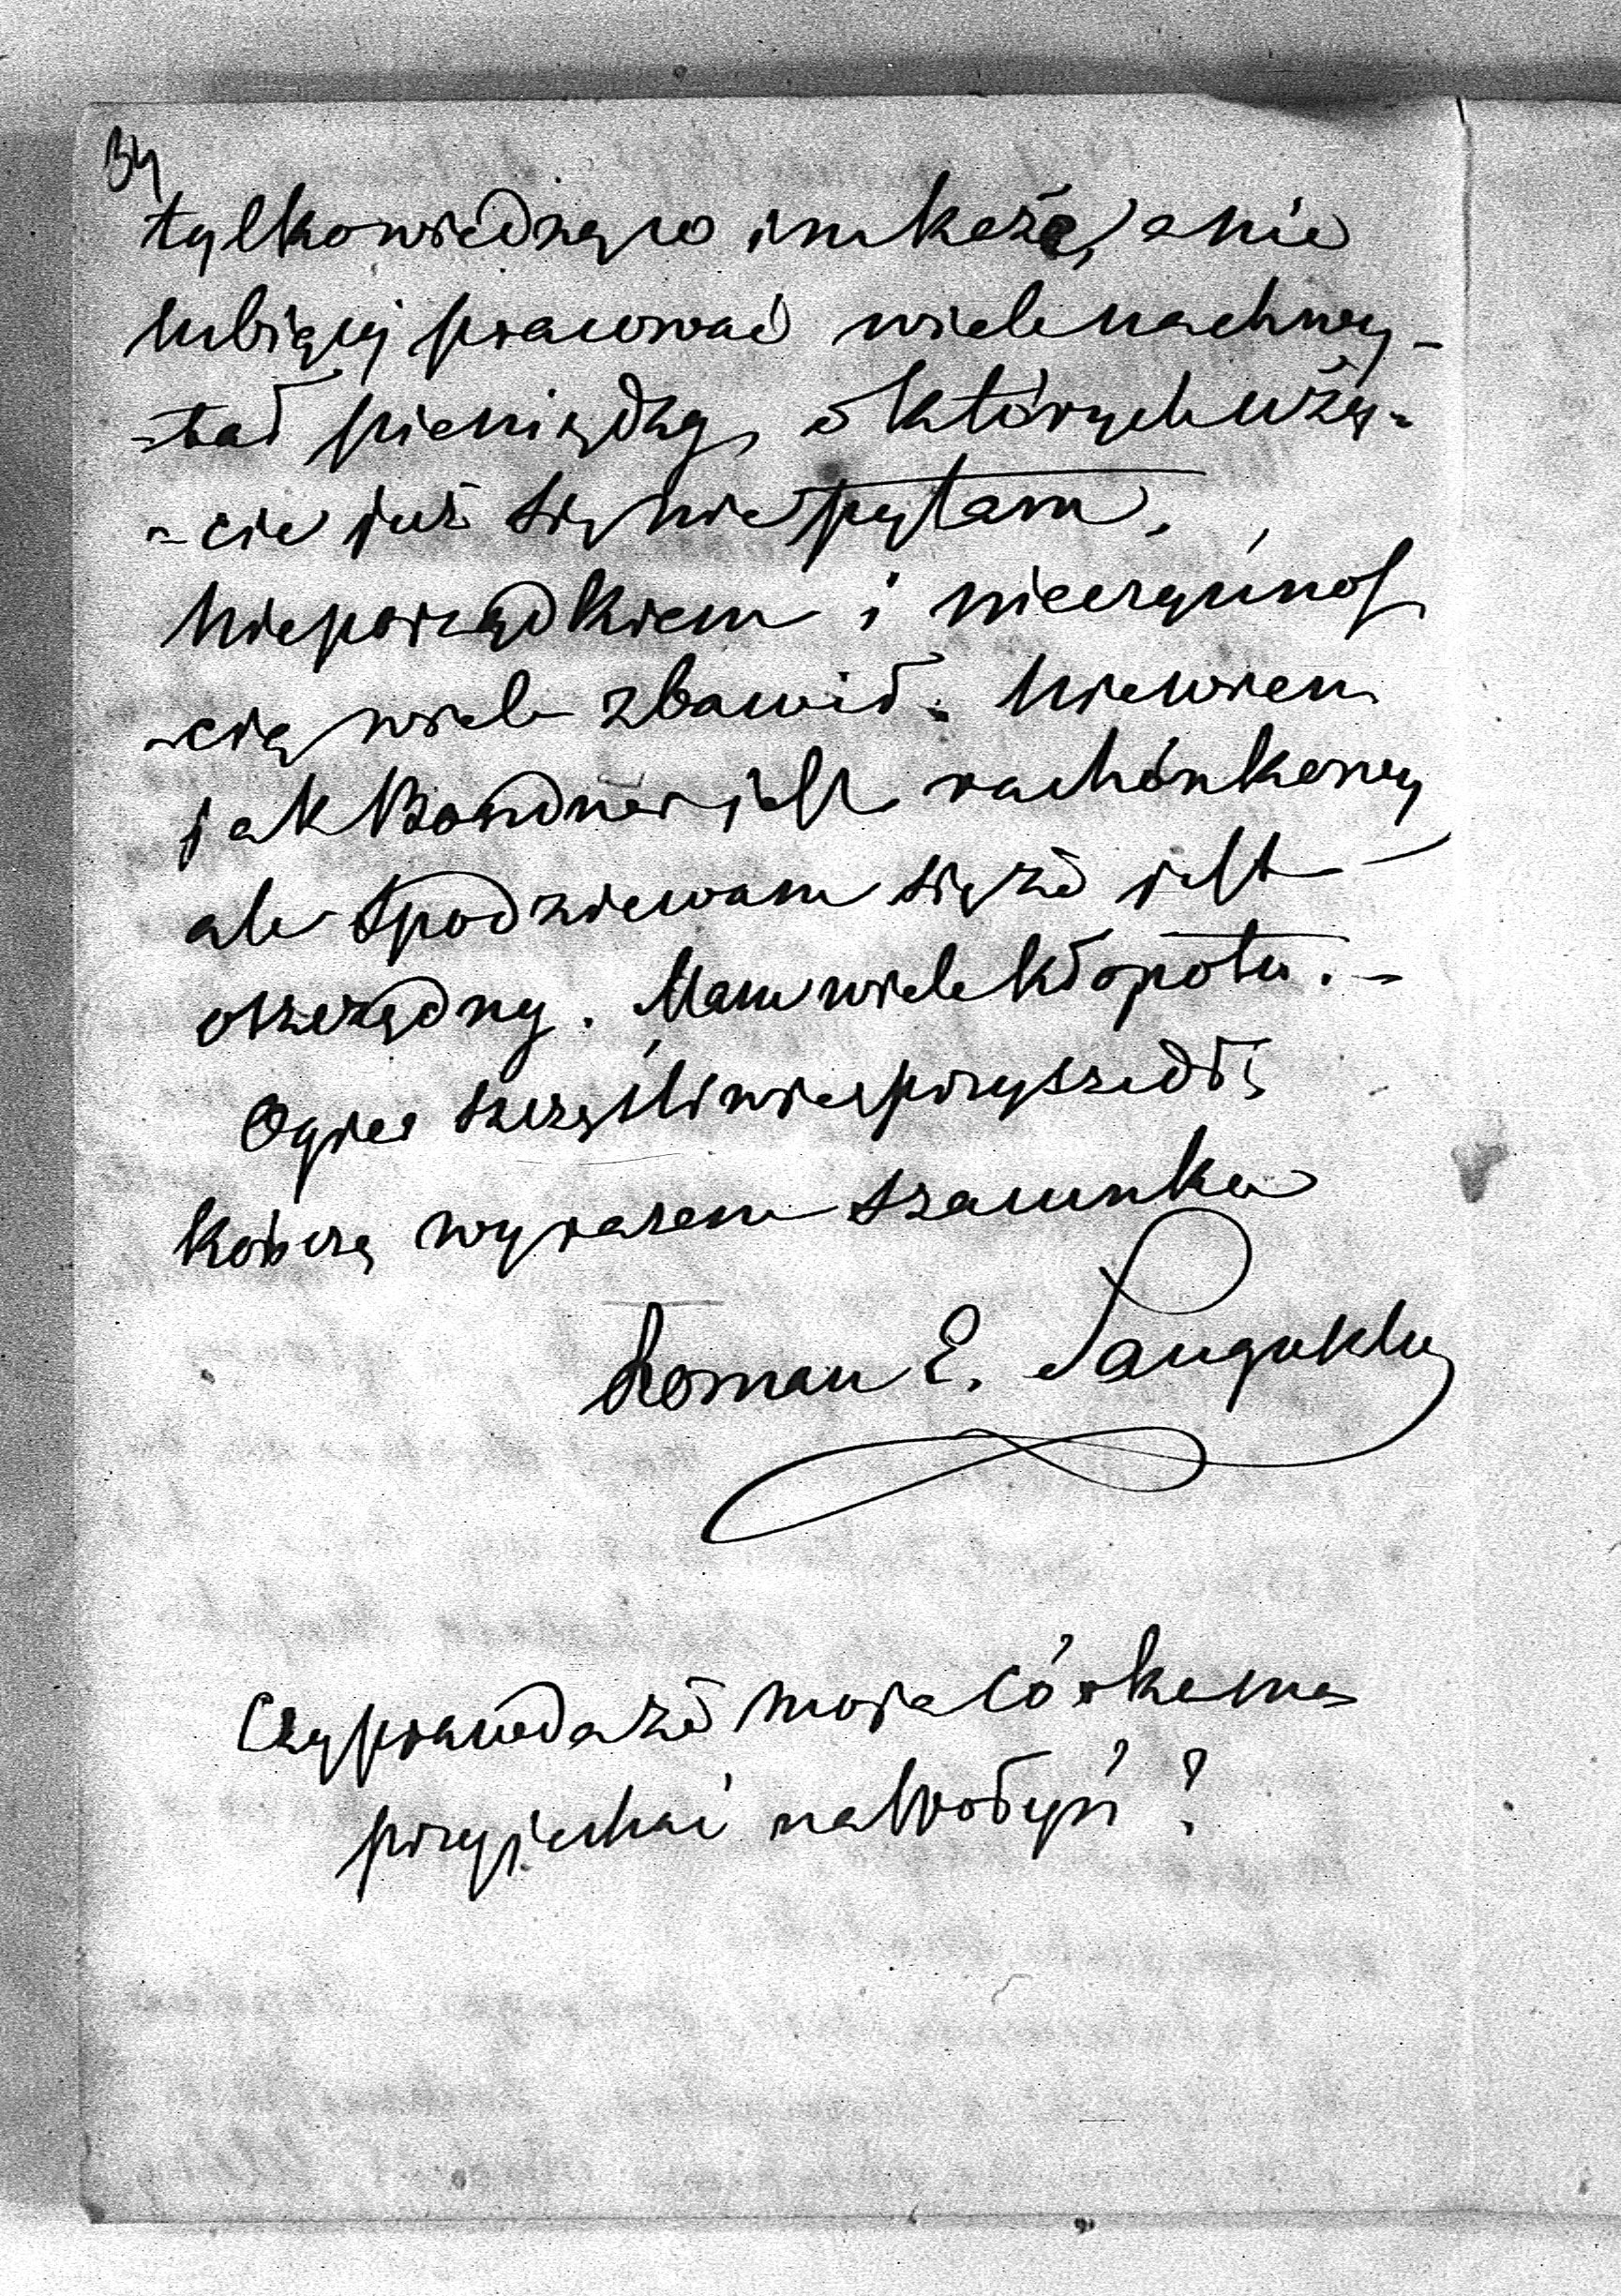 34
tylko wiedzą co im każę, a nie
lubiący pracować wiele nachwy-
-tał pieniędzy, o których uży-
-cie już się nie pytam.
Nieporządkiem i nieczynnoś
-cią wiele zbawił. Niewiem
jak Bondner jest rachónkowy
ale spodziewam się że jest
oszczędny. Mam wiele kłopotu. -
Ogier szczęśliwie przyszedł,
Kończę wyrazem szacunku
Roman E. Sanguszko
Czy prawda że moja córka ma
przyjechać na Wołyń?